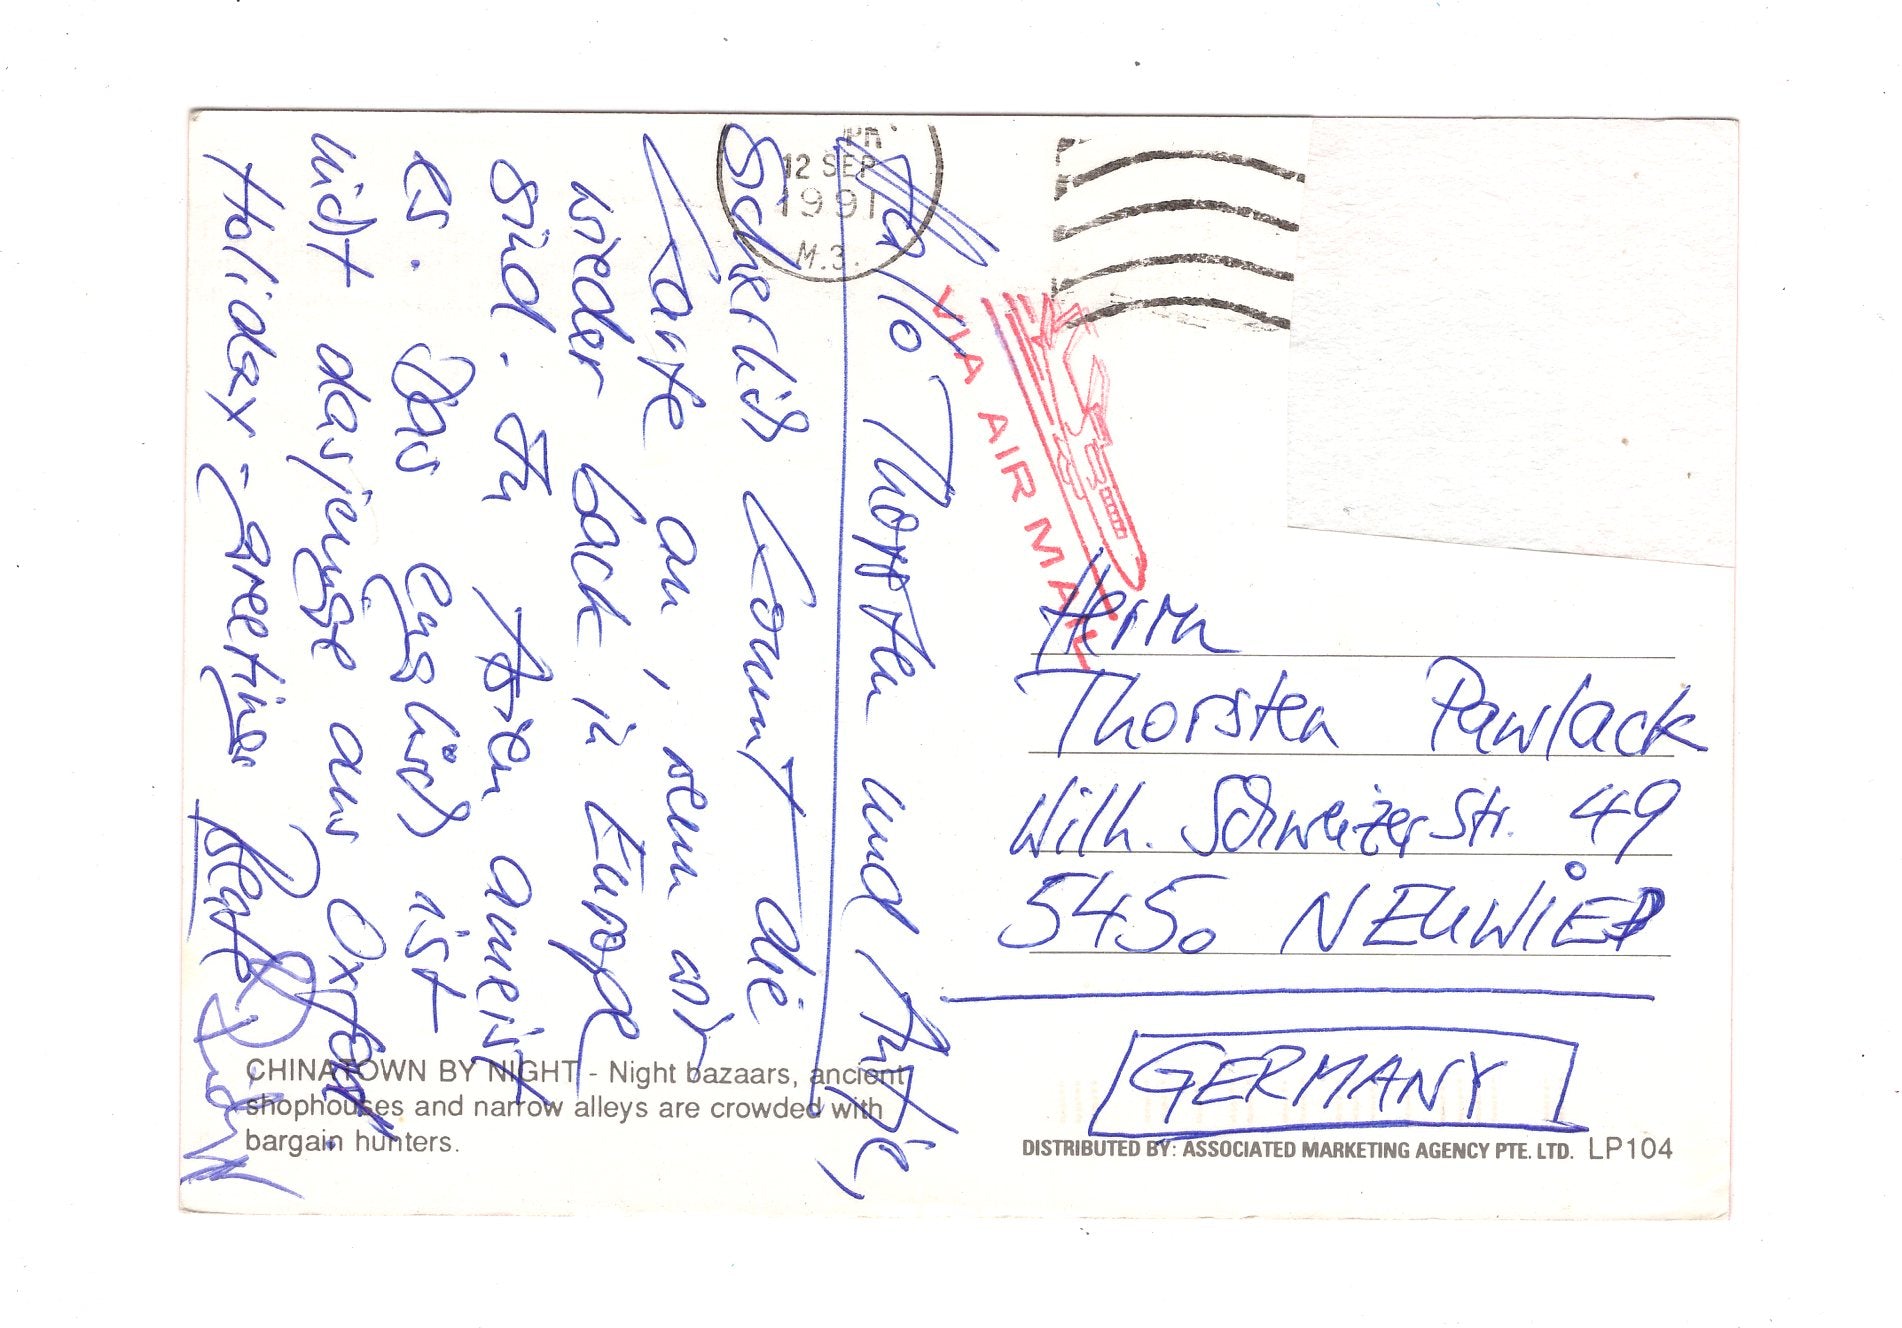 Hallo Thorsten und Antje,
Sicherlich kommt die
Karte an, wenn wir
wieder back in Europe
sind. In Asien ameist
es. Das englisch ist
nicht dasjenige aus Oxford.
Holiday-Greetings Beat
PM
12 SEP
1991
M.3.
VIA AIR MAIL
Herrn
Thorsten Pawlack
Wilh. Schweizer Str. 49
5450 NEUWIED
GERMANY
CHINATOWN BY NIGHT - Night bazaars, ancient
shophouses and narrow alleys are crowded with
bargain hunters.
DISTRIBUTED BY: ASSOCIATED MARKETING AGENCY PTE. LTD. LP104